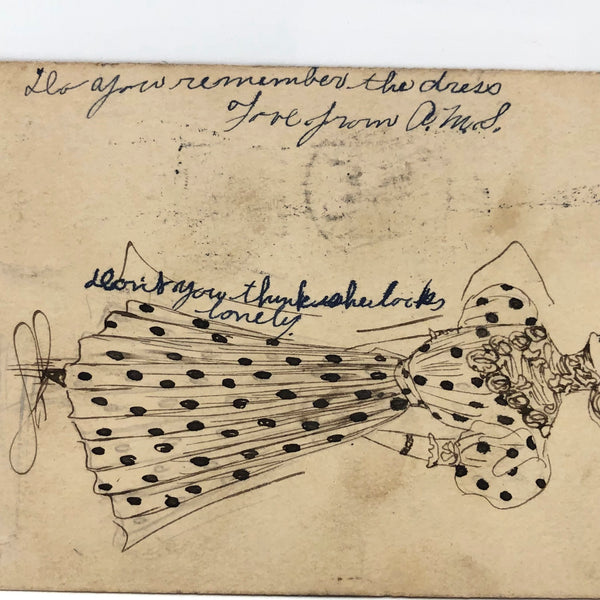 Do you remember the dress
Love from A.M.S.
Don't you think she looks
lonely